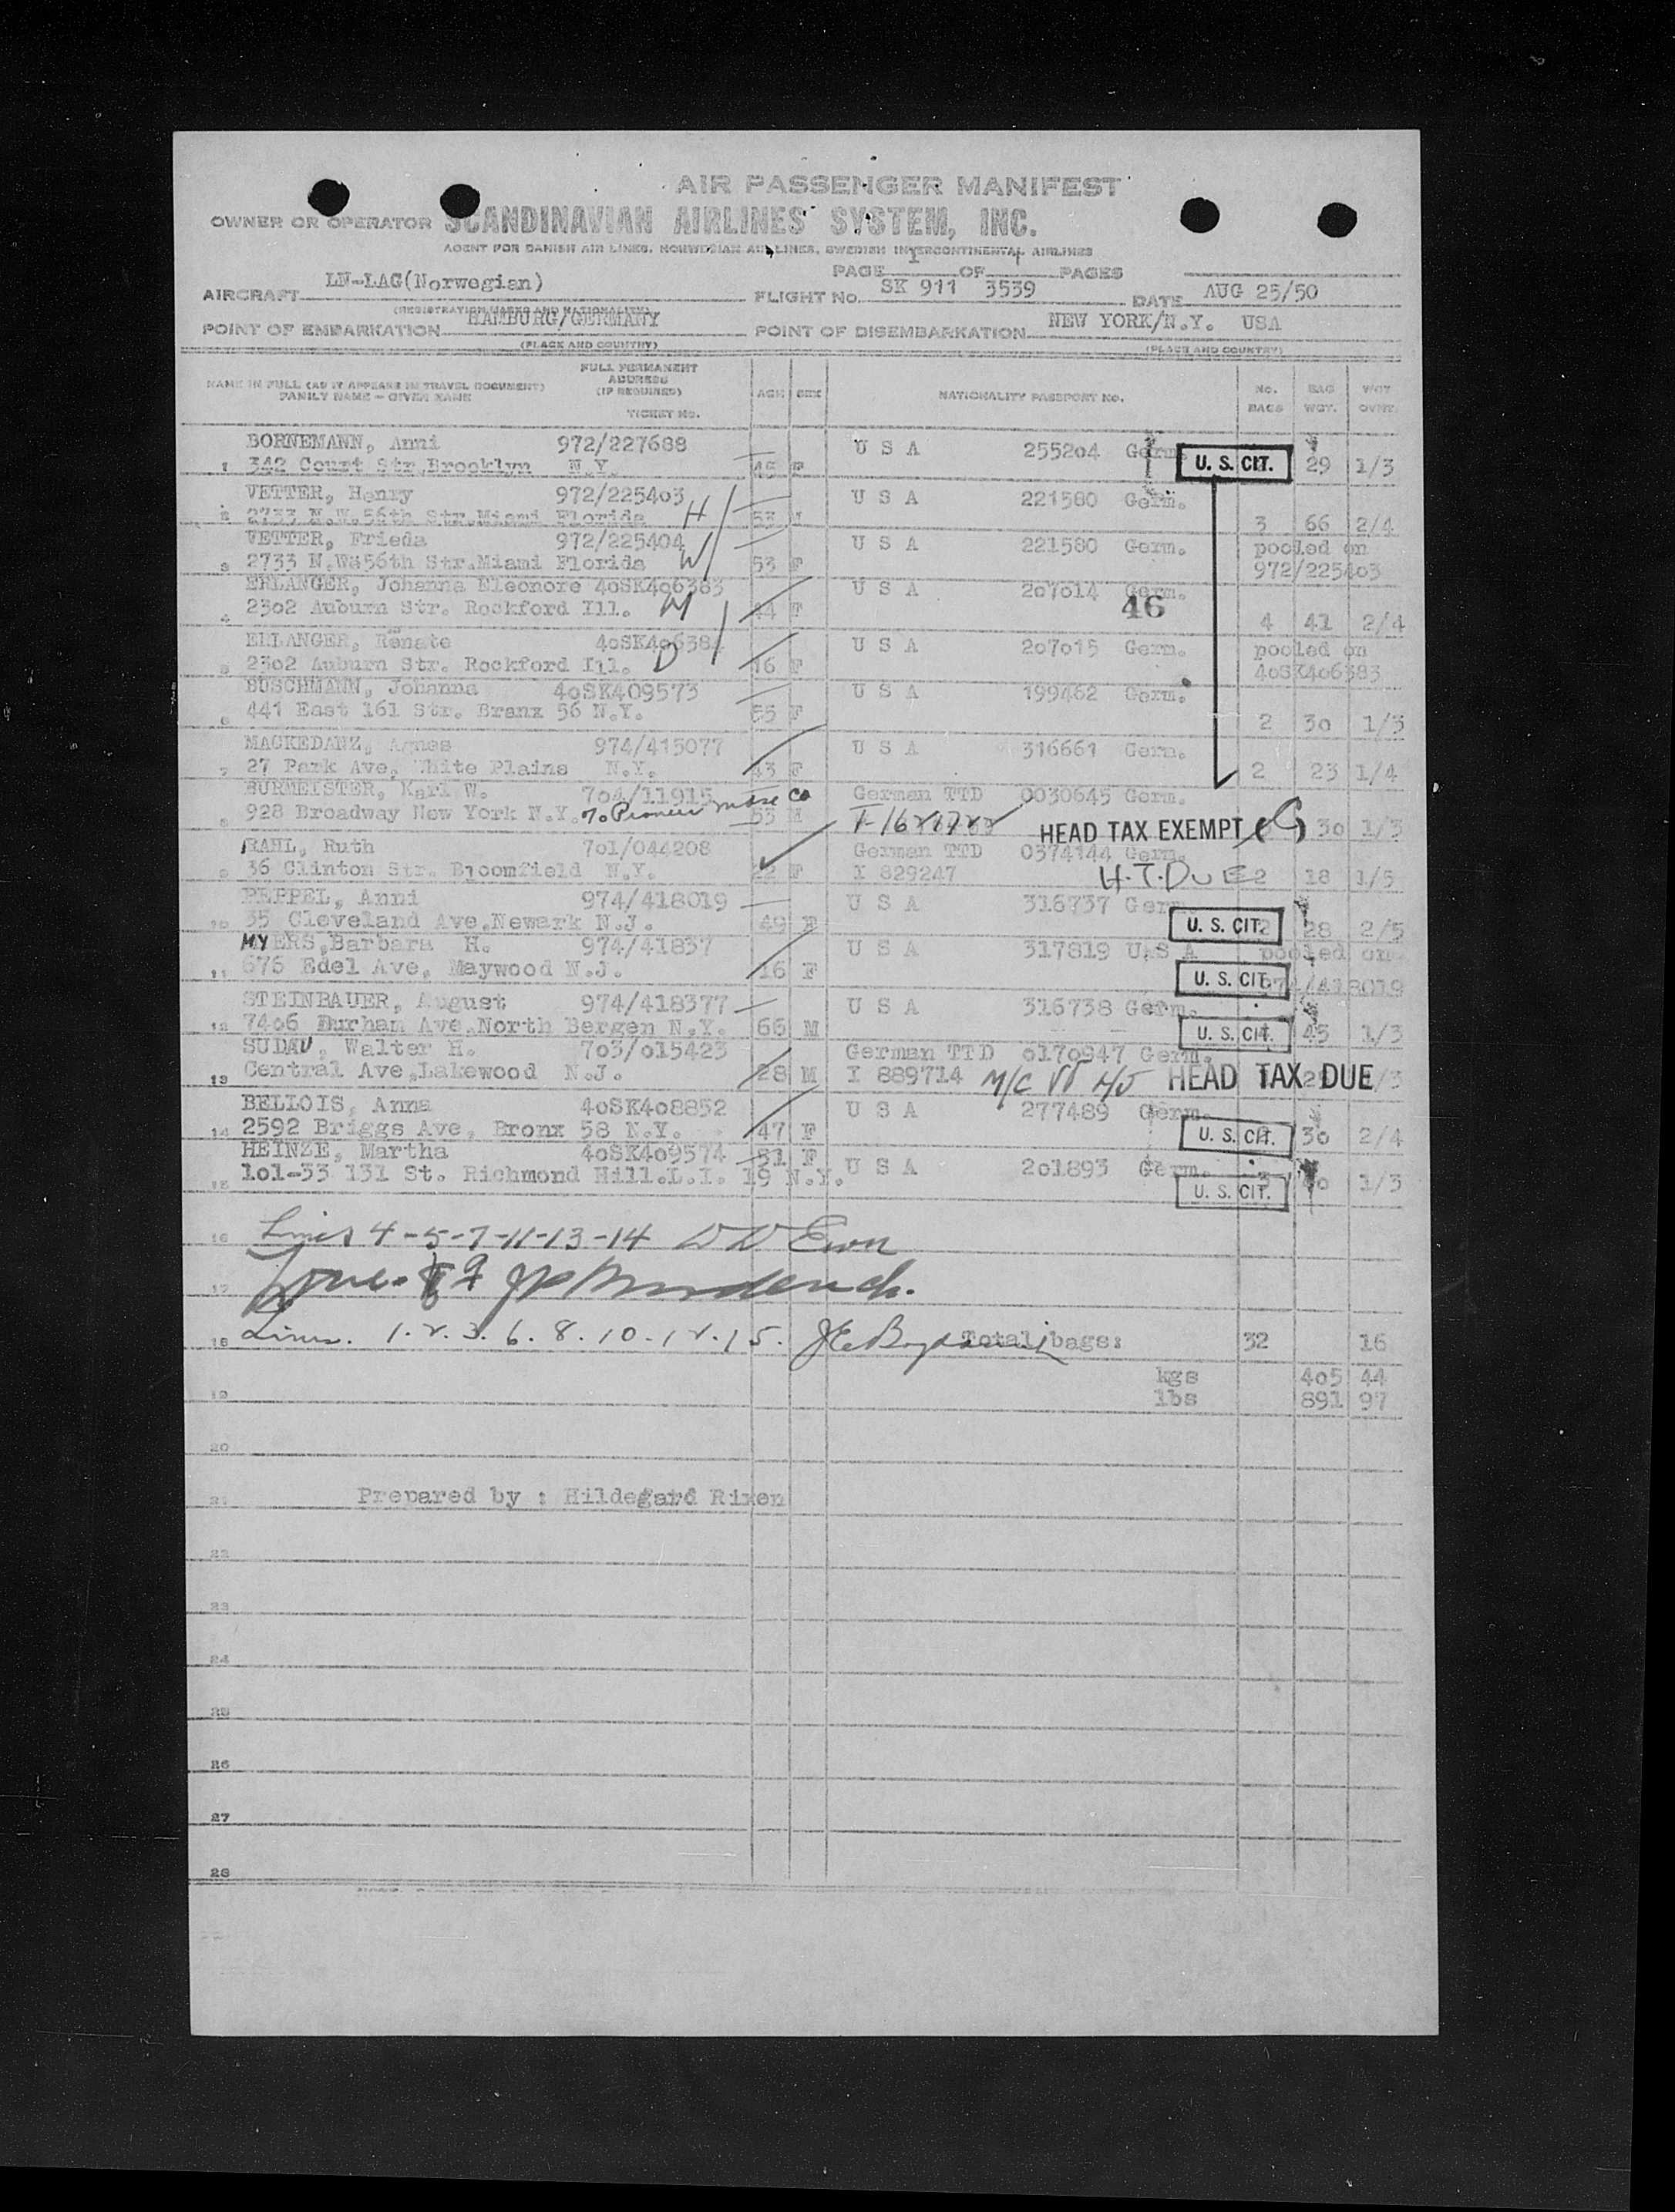 AIR PASSENGER MANIFEST
OWNER OR OPERATOR SCANDINAVIAN AIRLINES SYSTEM, INC.
AGENT FOR DANISH AIR LINES, NORWEGIAN AIR LINES, SWEDISH INTERCONTINENTAL AIRLINES
PAGE 1 OF 1 PAGES
AIRCRAFT LN-LAG(Norwegian) FLIGHT No. SK 911 3539 DATE AUG 25/50
(REGISTRATION MARKS AND NATIONALITY)
POINT OF EMBARKATION HAMBURG/GERMANY POINT OF DISEMBARKATION NEW YORK/N.Y. USA
(PLACE AND COUNTRY) (PLACE AND COUNTRY)
NAME IN FULL (AS IT APPEARS IN TRAVEL DOCUMENT) FULL PERMANENT ADDRESS AGE SEX NATIONALITY PASSPORT No. No. BAG WGT
FAMILY NAME - GIVEN NAME (IF REQUIRED) TICKET No. BAGS WGT.
BORNEMANN, Anni 972/227688 U S A 255204 Germ.
1 342 Court Str.Brooklyn N.Y. F U. S. CIT. 29 1/3
VETTER, Henry 972/225403 H U S A 221580 Germ.
2 2733 N.W.56th Str.Miami Florida 53 3 66 2/4
VETTER, Frieda 972/225404 W U S A 221580 Germ. pooled on
3 2733 N.W.56th Str.Miami Florida 53 F 972/225403
ERLANGER, Johanna Eleonore 4oSK4o6383 U S A 2o7o14 Germ.
4 23o2 Auburn Str. Rockford Ill. M 44 F 46 4 41 2/4
ELLANGER, Renate 4oSK4o6384 U S A 2o7o15 Germ. pooled on
5 23o2 Auburn Str. Rockford Ill. D 16 F 4oSK4o6383
BUSCHMANN, Johanna 4oSK4o9573 U S A 199462 Germ.
6 441 East 161 Str. Branx 56 N.Y. 55 F 2 3o 1/3
MACKEDANZ, Agnes 974/415077 U S A 316661 Germ.
7 27 Park Ave, White Plains N.Y. 43 F 2 23 1/4
BURMEISTER, Karl W. 7o4/11915 German TTD 0030645 Germ.
8 928 Broadway New York N.Y. % Pioneer Co 53 M HEAD TAX EXEMPT 3o 1/3
RAHL, Ruth 7o1/044208 German TTD 0374144 Germ.
9 36 Clinton Str. Bloomfield N.Y. 22 F I 829247 H.T.DUE 2 18 1/5
PEPPEL, Anni 974/418019 U S A 316737 Germ.
10 35 Cleveland Ave.Newark N.J. 49 F U. S. CIT. 2 28 2/5
MYERS,Barbara H. 974/41837 U S A 317819 U.S A pooled on
11 676 Edel Ave, Maywood N.J. 16 F U. S. CIT. 974/418019
STEINBAUER, August 974/418377 U S A 316738 Germ.
12 74o6 Durham Ave.North Bergen N.Y. 66 M U. S. CIT. 45 1/3
SUDAU, Walter H. 7o3/o15423 German TTD o17o947 Germ.
13 Central Ave,Lakewood N.J. 28 M I 889714 HEAD TAX DUE
BELLOIS, Anna 4oSK4o8852 U S A 277489 Germ.
14 2592 Briggs Ave, Bronx 58 N.Y. 47 F U. S. CIT. 3o 2/4
HEINZE, Martha 4oSK4o9574 51 F U S A 2o1893 Germ.
15 1o1-33 131 St. Richmond Hill.L.I. 19 N.Y. U. S. CIT. 1/3
16 Lines 4-5-7-11-13-14
17
18 Lines. 1.2.3.6.8.10.12.15. Total bags: 32 16
kgs 4o5 44
19 lbs 891 97
20
21 Prepared by : Hildegard Rixen
22
23
24
25
26
27
28